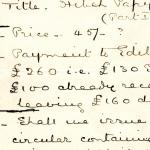 Title. Hibeh Pap
(Part I
- Price - 45/- ?
- Payment to Edit
£260 i.e. £130
£100 already rec
leaving £160 d
- Shall we issue
circular containin